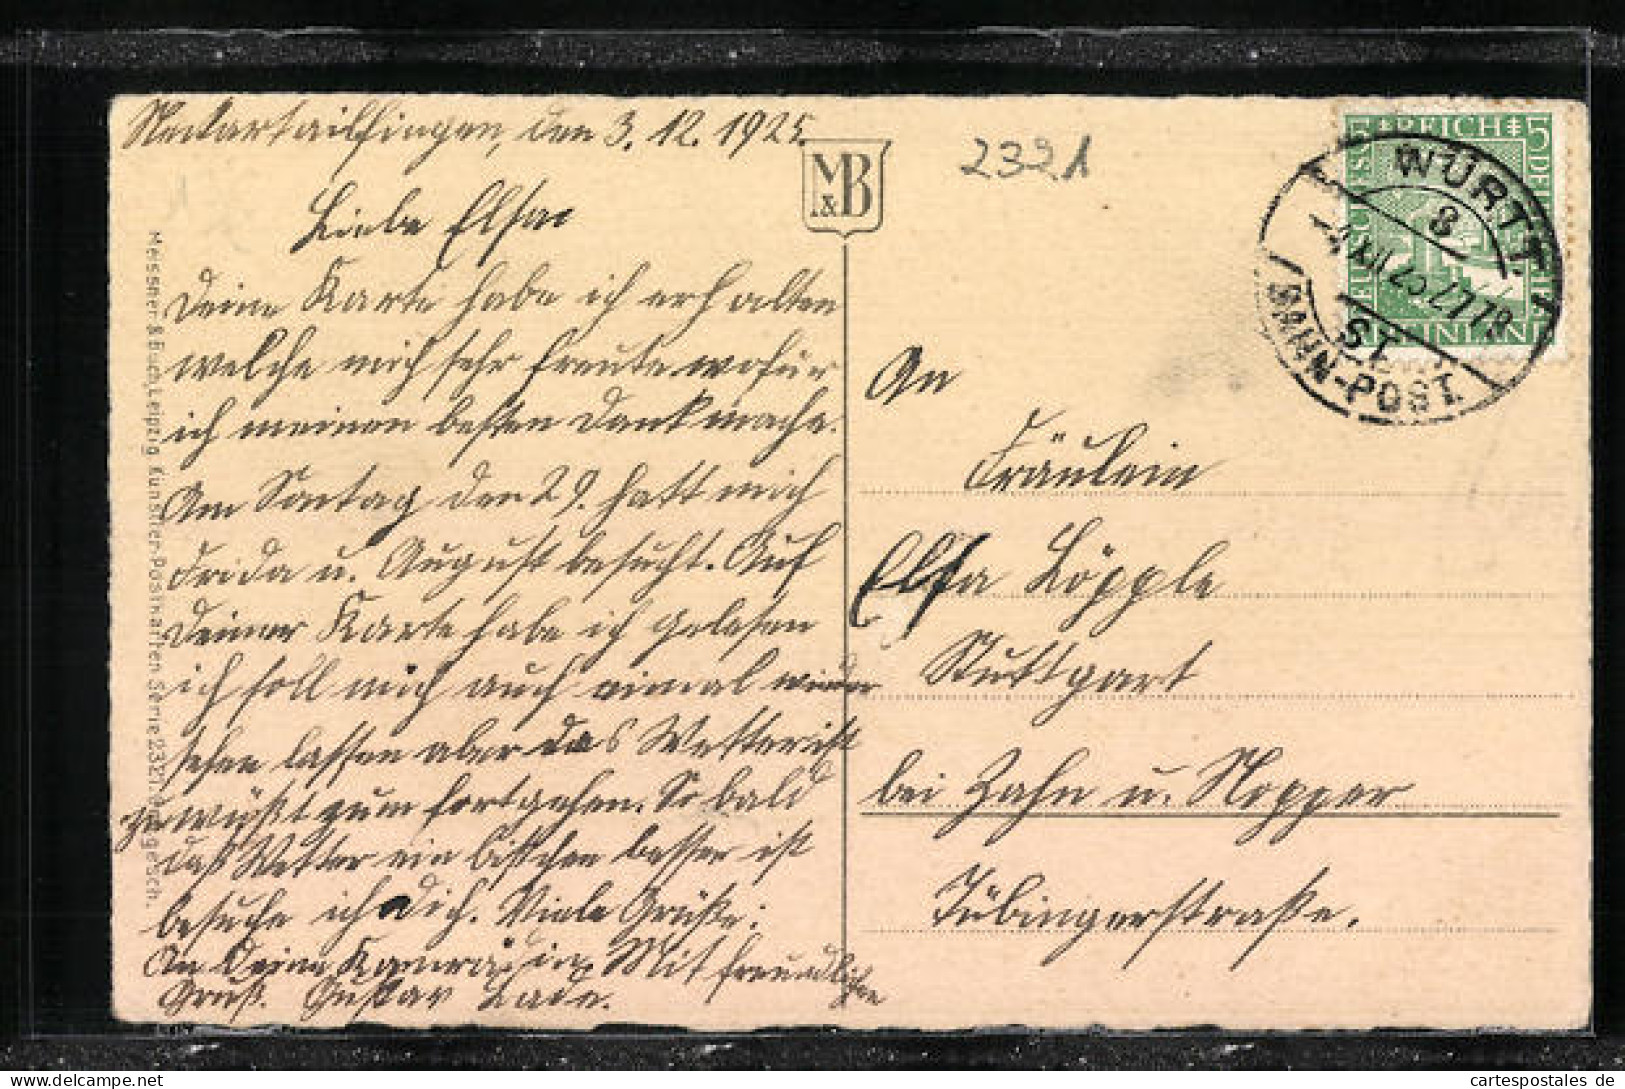 Neckartailfingen, den 3. 12. 1925.
Liebe Elsa
Deine Karte habe ich erhalten
welche mich sehr freute wofür
ich meinen besten Dank mache.
Am Sontag den 29. hatt mich
Frida u. August besucht. Auf
Deiner Karte habe ich gelesen
ich soll mich auch einmal wieder
sehen lassen aber das Wetter ist
zum fortgehen. So bald
das Wetter ein bisschen besser ist
besuche ich Dich. Viele Grüße:
An Deine Mit freundlichen
Gruß. Gustav
M&B
2321
Meissner & Buch Leipzig Künstler-Postkarten Serie 2321. gesch.
5 REICH 5
WÜRTT.
8
-4 XII 25
ST.
BAHN-POST.
An
Fräulein
Elsa Löpple
Stuttgart
bei Zahn u. Nopper
Tübingerstraße.
cartespostales de